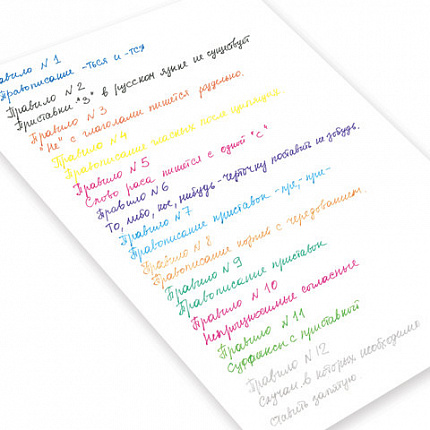 Правило N 1
Правописание -ться и -тся
Правило N 2
Приставки "З" в русском языке не существует
Правило N 3
"Не" с глаголами пишется раздельно.
Правило N 4
Правописание гласных после шипящих.
Правило N 5
Слово раса пишется с одной "с"
Правило N 6
То, либо, кое, нибудь - черточку поставить не забудь.
Правило N 7
Правописание приставок -пре, -при-
Правило N 8
Правописание корней с чередованием.
Правило N 9
Правописание приставок
Правило N 10
Непроизносимые согласные
Правило N 11
Суффиксы с приставкой
Правило N 12
Случаи, в которых необходимо
ставить запятую.